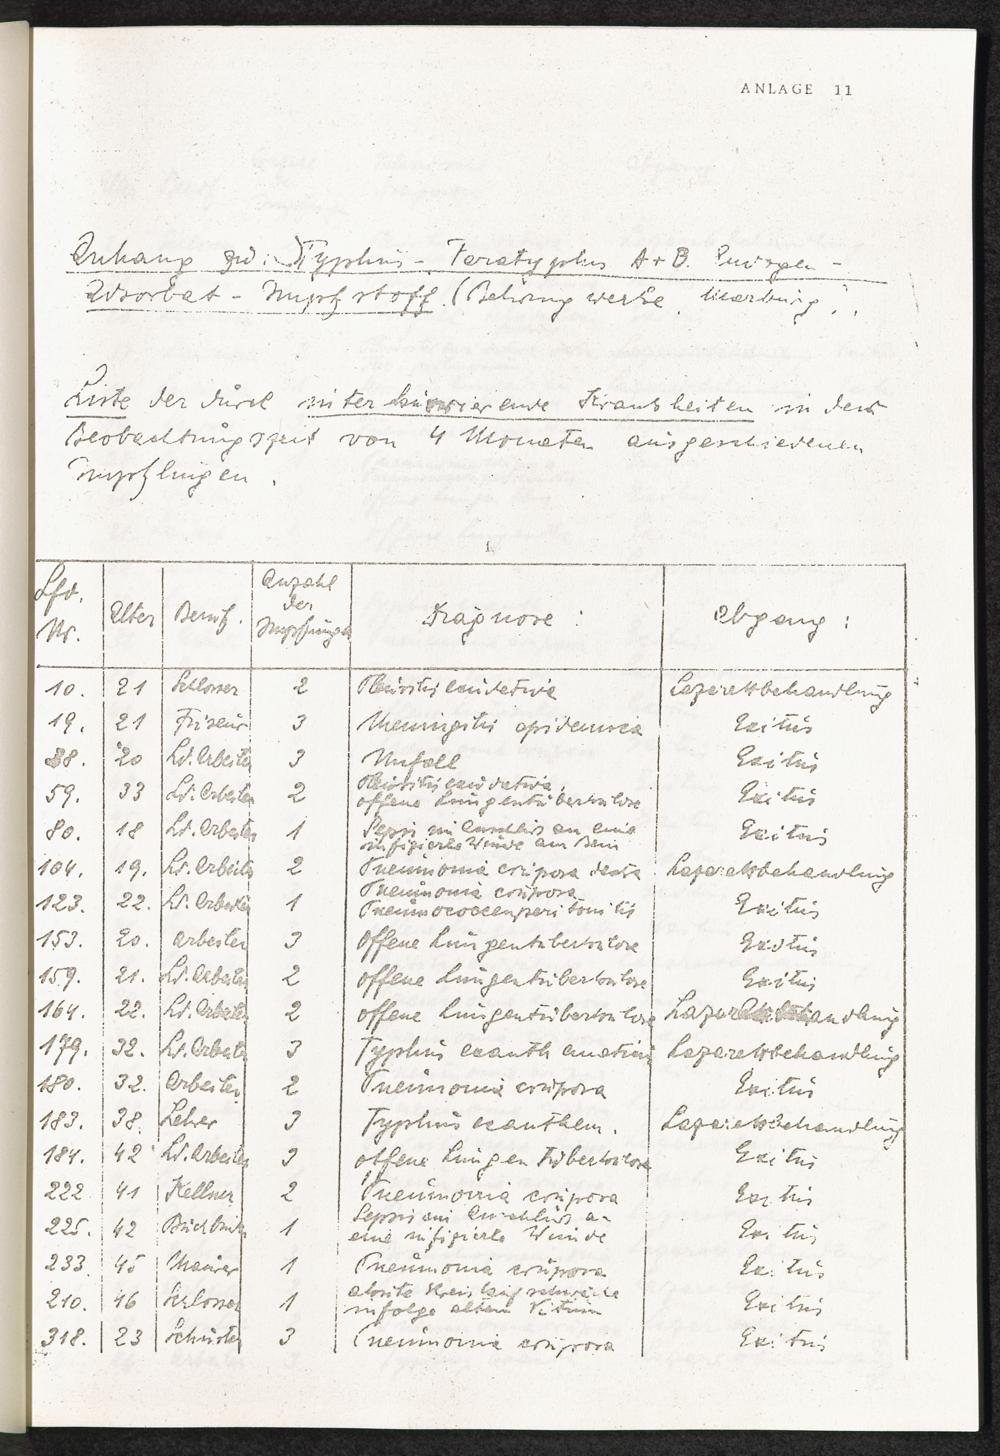 ANLAGE 11
Anhang zu: Typhus - Paratyphus A + B.
Adsorbat - Impfstoff (Behring werke, Marburg)
Liste der durch interkurrierende Krankheiten in der
Beobachtungszeit von 4 Monaten ausgeschiedenen
Impflingen.
1.
Lfd. Nr. Alter Beruf. Anzahl der Impfungen Diagnose: Abgang:
10. 21 Schlosser 2 Pleuritis exudativa Lazarettbehandlung
19. 21 Friseur 3 Meningitis epidemica Exitus
38. 20 Ld. Arbeiter 3 Unfall Exitus
59. 33 Ld. Arbeiter 2 Pleuritis exudativa, offene Lungentuberkulose Exitus
80. 18 Ld. Arbeiter 1 Sepsis im Anschluss an eine infizierte Wunde am Bein Exitus
104. 19. Ld. Arbeiter 2 Pneumonia cruposa Lazarettbehandlung
123. 22. Ld. Arbeiter 1 Pneumonia cruposa Pneumococcenperitonitis Exitus
153. 20. Arbeiter 3 offene Lungentuberkulose Exitus
159. 21. Ld. Arbeiter 2 offene Lungentuberkulose Exitus
164. 22. Ld. Arbeiter 2 offene Lungentuberkulose Lazarettbehandlung
179. 32. Ld. Arbeiter 3 Typhus exanthematicus Lazarettbehandlung
180. 32. Arbeiter 2 Pneumonia cruposa Exitus
183. 38. Lehrer 3 Typhus exanthem. Lazarettbehandlung
184. 42 Ld. Arbeiter 3 offene Lungen Tuberkulose Exitus
222 41 Kellner 2 Pneumonia cruposa Exitus
225. 42 1 Sepsis im Anschluss an eine infizierte Wunde Exitus
233. 45 Maurer 1 Pneumonia cruposa Exitus
210. 46 Schlosser 1 akute Kreislaufschwäche infolge altem Vitium Exitus
318. 23 Schuster 3 Pneumonia cruposa Exitus